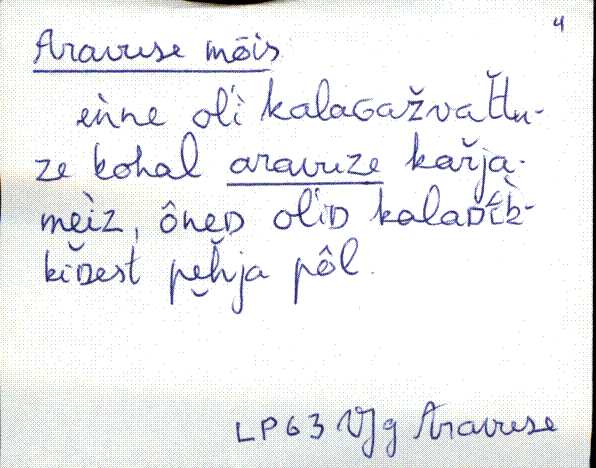 4
Aravuse mõis
enne oĺi kalaGažvaťťu-
ze kohal aravuze kařja-
meìz, ôneD oĺiD kalaDîk-
kiDest pęȟja pôl.
LPG3 VJg Aravuse